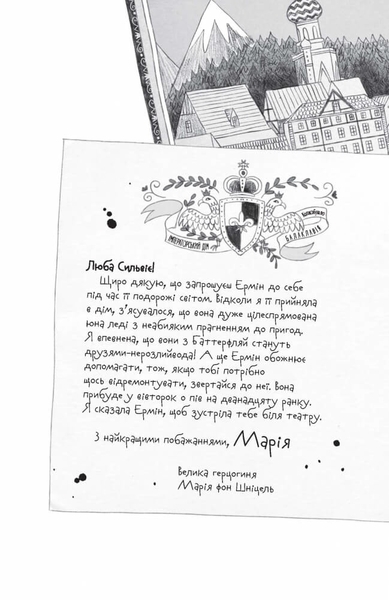 ІМПЕРАТОРСЬКИЙ ДІМ
БАЛАКЛАВІЯ
Люба Сильвіє!
Щиро дякую, що запрошуєш Ермін до себе
під час її подорожі світом. Відколи я її прийняла
в дім, з’ясувалося, що вона дуже цілеспрямована
юна леді з неабияким прагненням до пригод.
Я впевнена, що вони з Баттерфляй стануть
друзями-нерозлийвода! А ще Ермін обожнює
допомагати, тож, якщо тобі потрібно
щось відремонтувати, звертайся до неї. Вона
прибуде у вівторок о пів на дванадцяту ранку.
Я сказала Ермін, щоб зустріла тебе біля театру.
З найкращими побажаннями, Марія
Велика герцогиня
Марія фон Шніцель